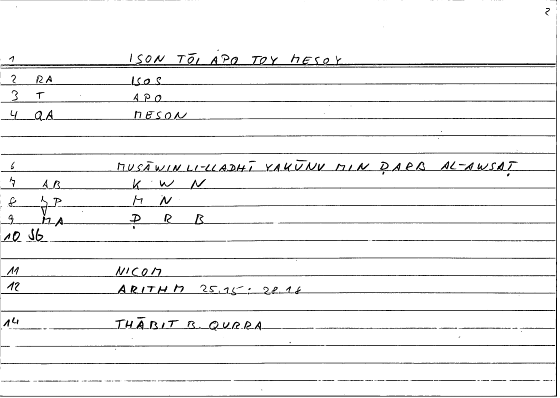 2
1 ISON TŌI APO TOY MESOY
2 RA ISOS
3 T APO
4 QA MESON
6 MUSĀWIN LI-LLADHĪ YAKŪNU MIN ḌARB AL-AWSAṬ
7 AB K W N
8 P M N
9 MA Ḍ R B
10 56
11 NICOM
12 ARITHM 25.15 : 28.18
14 THĀBIT B. QURRA